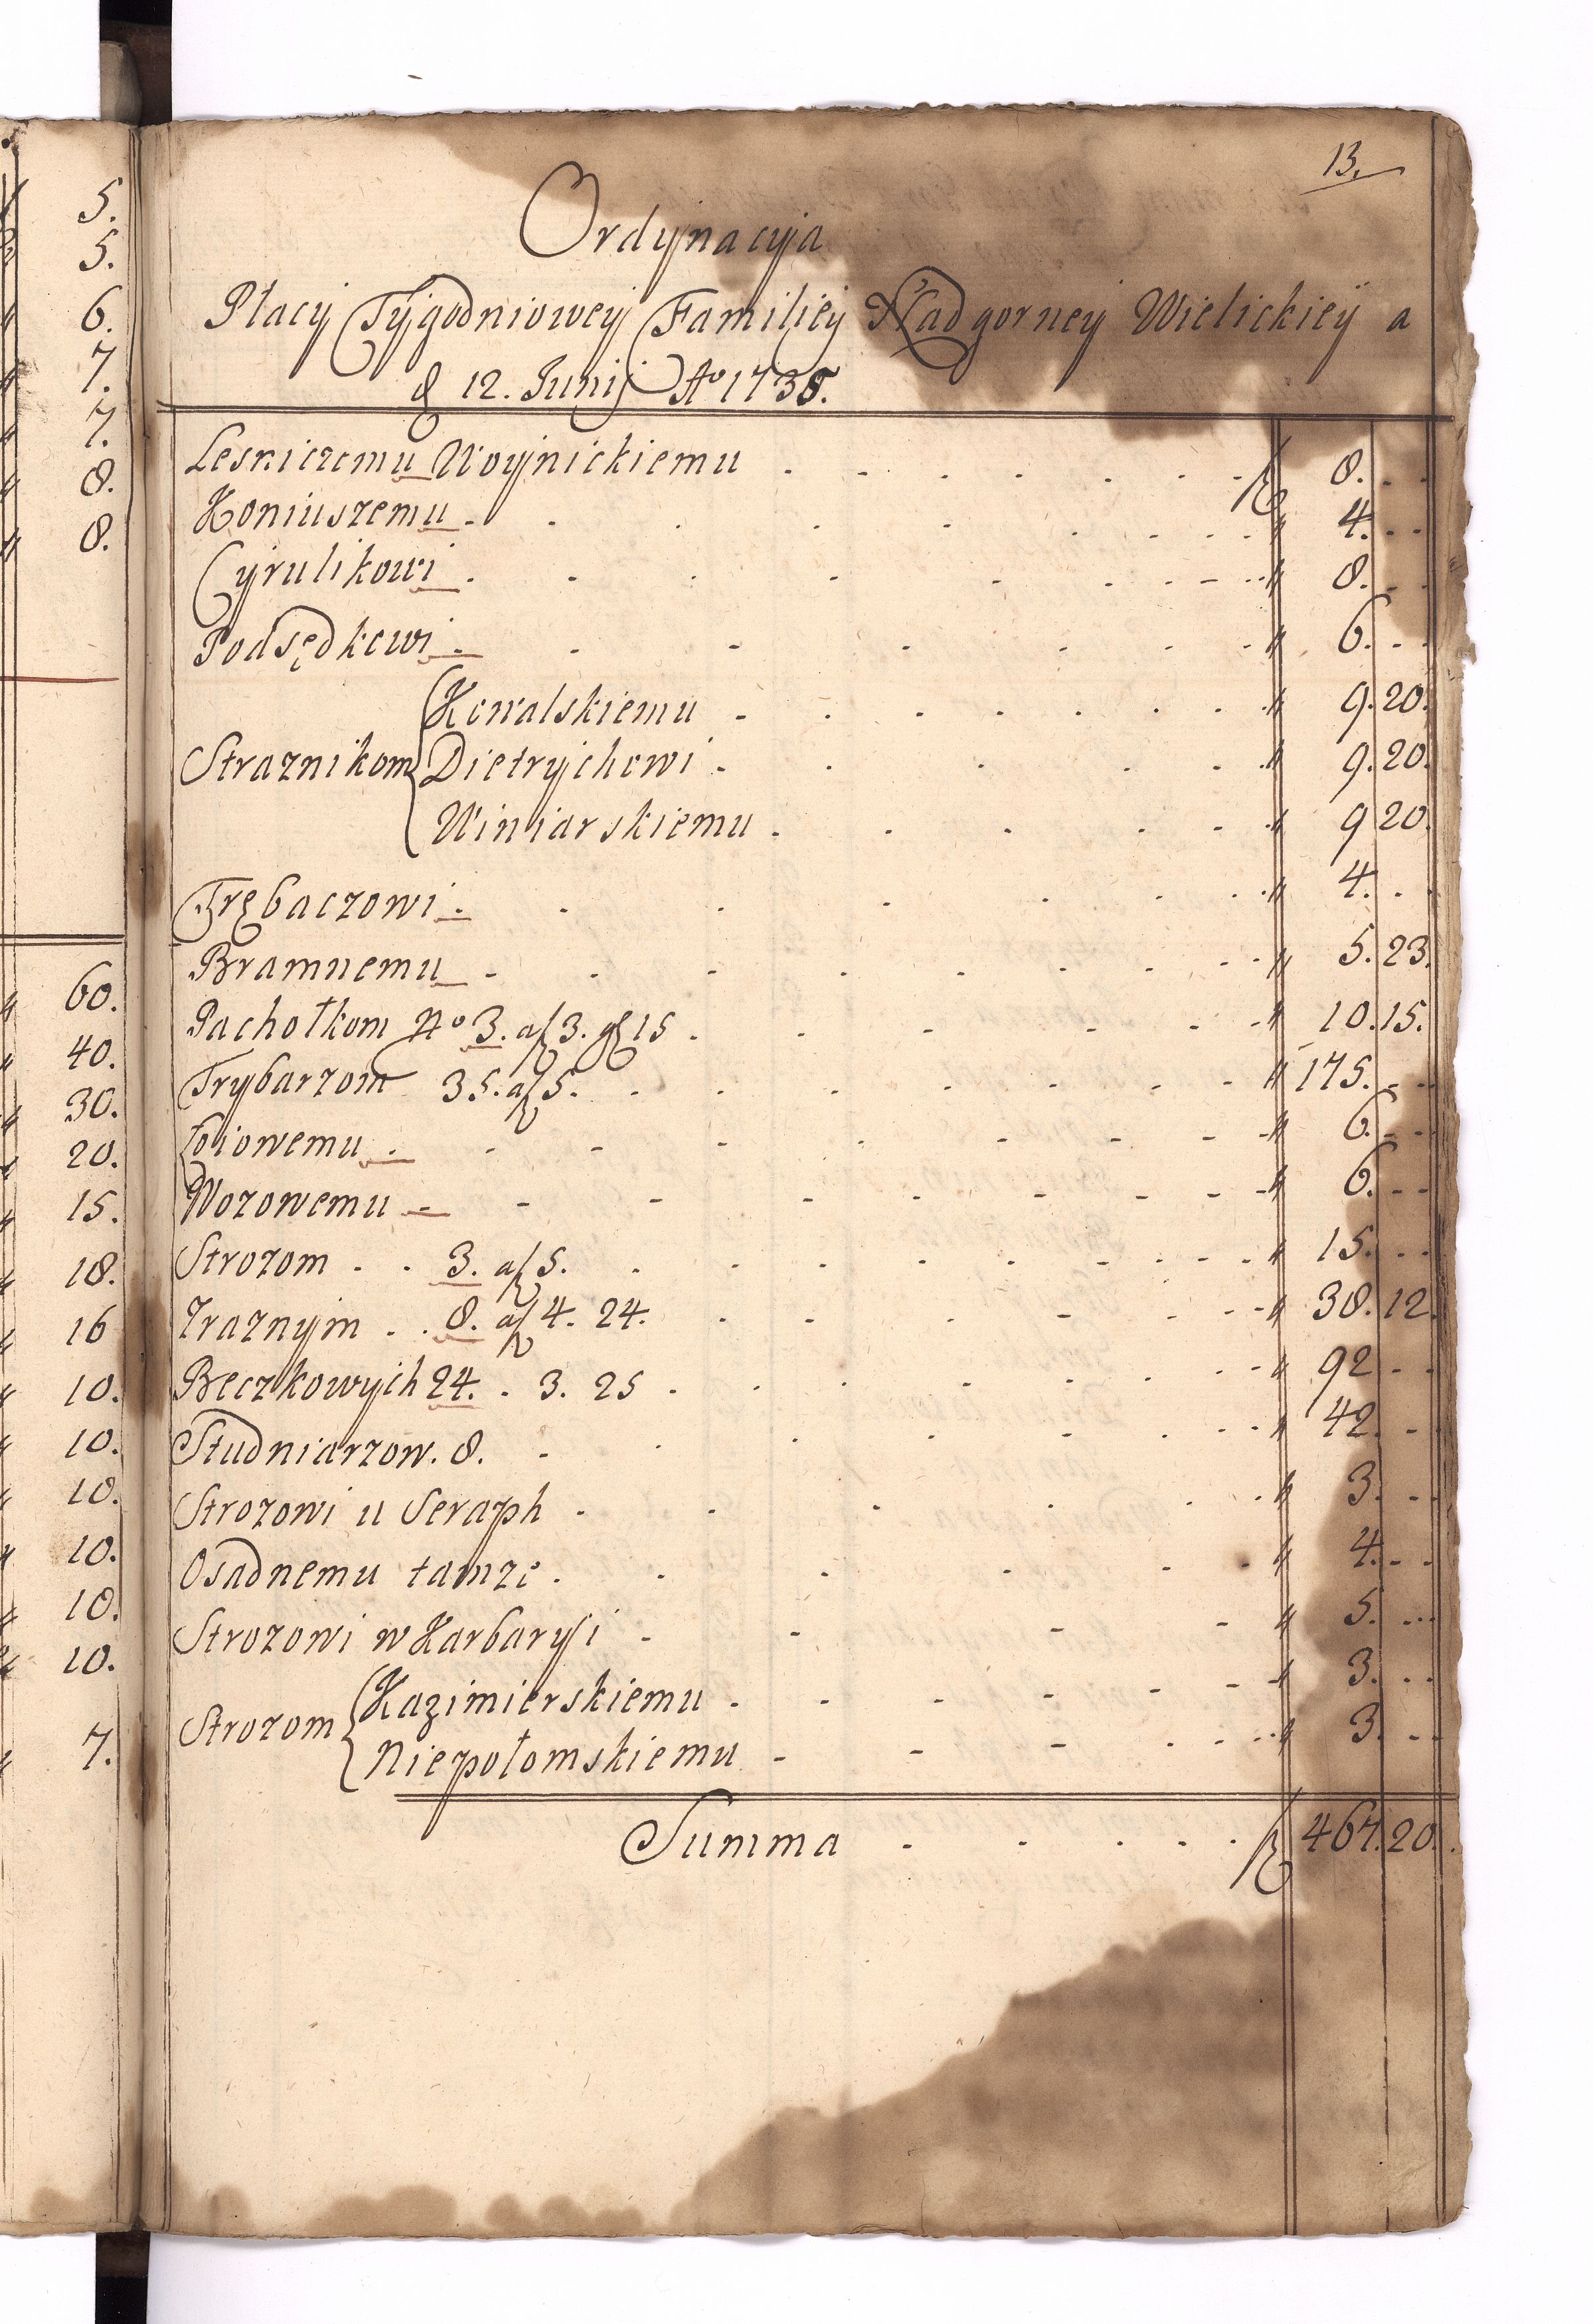 5.
5.
6.
7.
7.
8.
8.
60.
40.
30.
20.
15.
18.
16
10.
10.
10.
10.
10.
10.
7.
13.
Ordÿnacÿa
Płacÿ Tÿgodnioweÿ Familiiëÿ Nadgorneÿ Wielickiëÿ a
d 12. Junij Aº 1735.
Lesniczemu Woÿnickiemu . - . . . . - . f 8. - -
Koniuszemu . . . . . . - . . . " 4. - -
Cÿrulikowi . . . . . . . - . . " 8. - -
Podsędkowi - . - . . - . " 6. - -
Kowalskiemu - . . . . . . " 9. 20.
Straznikom Dietrÿchowi . . . . . . " 9. 20.
Winiarskiemu . . . . . " 9 20.
Trębaczowi . . . . . . . " 4. . .
Bramnemu - . . . . . . . " 5. 23.
Pachołkom Nº 3. af 3. gl 15 . . - . . - " 10. 15.
Trÿbarzom 35. af 5. . . . . . . - " 175. - -
Łoiowemu . - - - . . - - " 6. - -
Wozowemu - - - - - . - - " 6. - -
Strozom . . 3. af 5. . . . . . . . " 15. . .
Zraznÿm . . 8. af 4. 24. . . . - . . - " 38. 12.
Beczkowÿch 24. . 3. 25 . . . . . . . - " 92 - -
Studniarzow. 8. - . . . . . . - " 42. - .
Strozowi u Seraph . . . . . . " 3. - .
Osadnemu tamze . . . . . " 4. - -
Strozowi w Karbarÿi - - - - " 5. ...
Kazimierskiemu . . . . . - - " 3. . .
Strozom
Niepołomskiemu - - - . . . " 3. - -
Summa . . . . . f 467. 20.